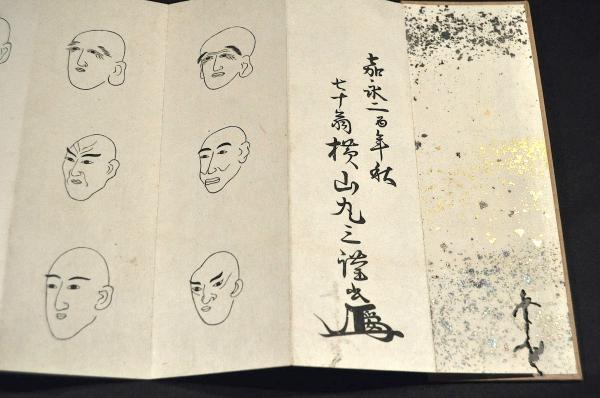 嘉永二酉年秋
七十翁横山丸三謹書